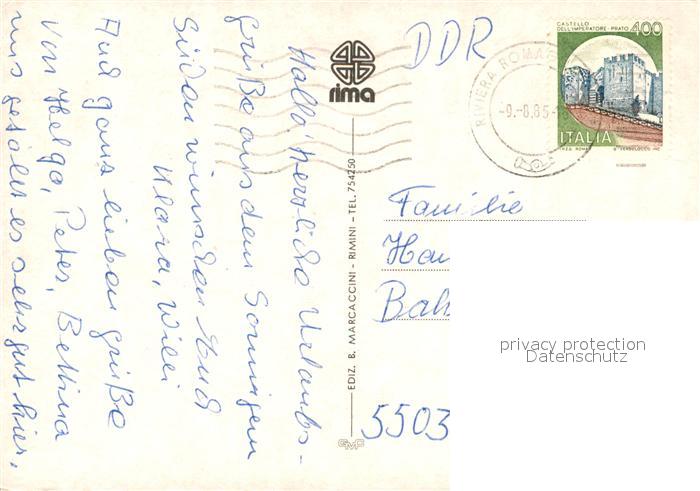 Hallo! Herzliche Urlaubs-
grüße aus dem Sonnigen
Süden wünschen Euch
Klara, Willi
Auch ganz lieben grüße
von Helga, Peter, Bettina
uns gefällt es sehr gut hier.
rima
EDIZ. B. MARCACCINI - RIMINI - TEL. 754250
GMP
DDR
RIVIERA ROMAG
-9.-8.85-
CASTELLO
DELL'IMPERATORE - PRATO 400
ITALIA
I.P.Z.S. ROMA
Familie
5503
privacy protection
Datenschutz